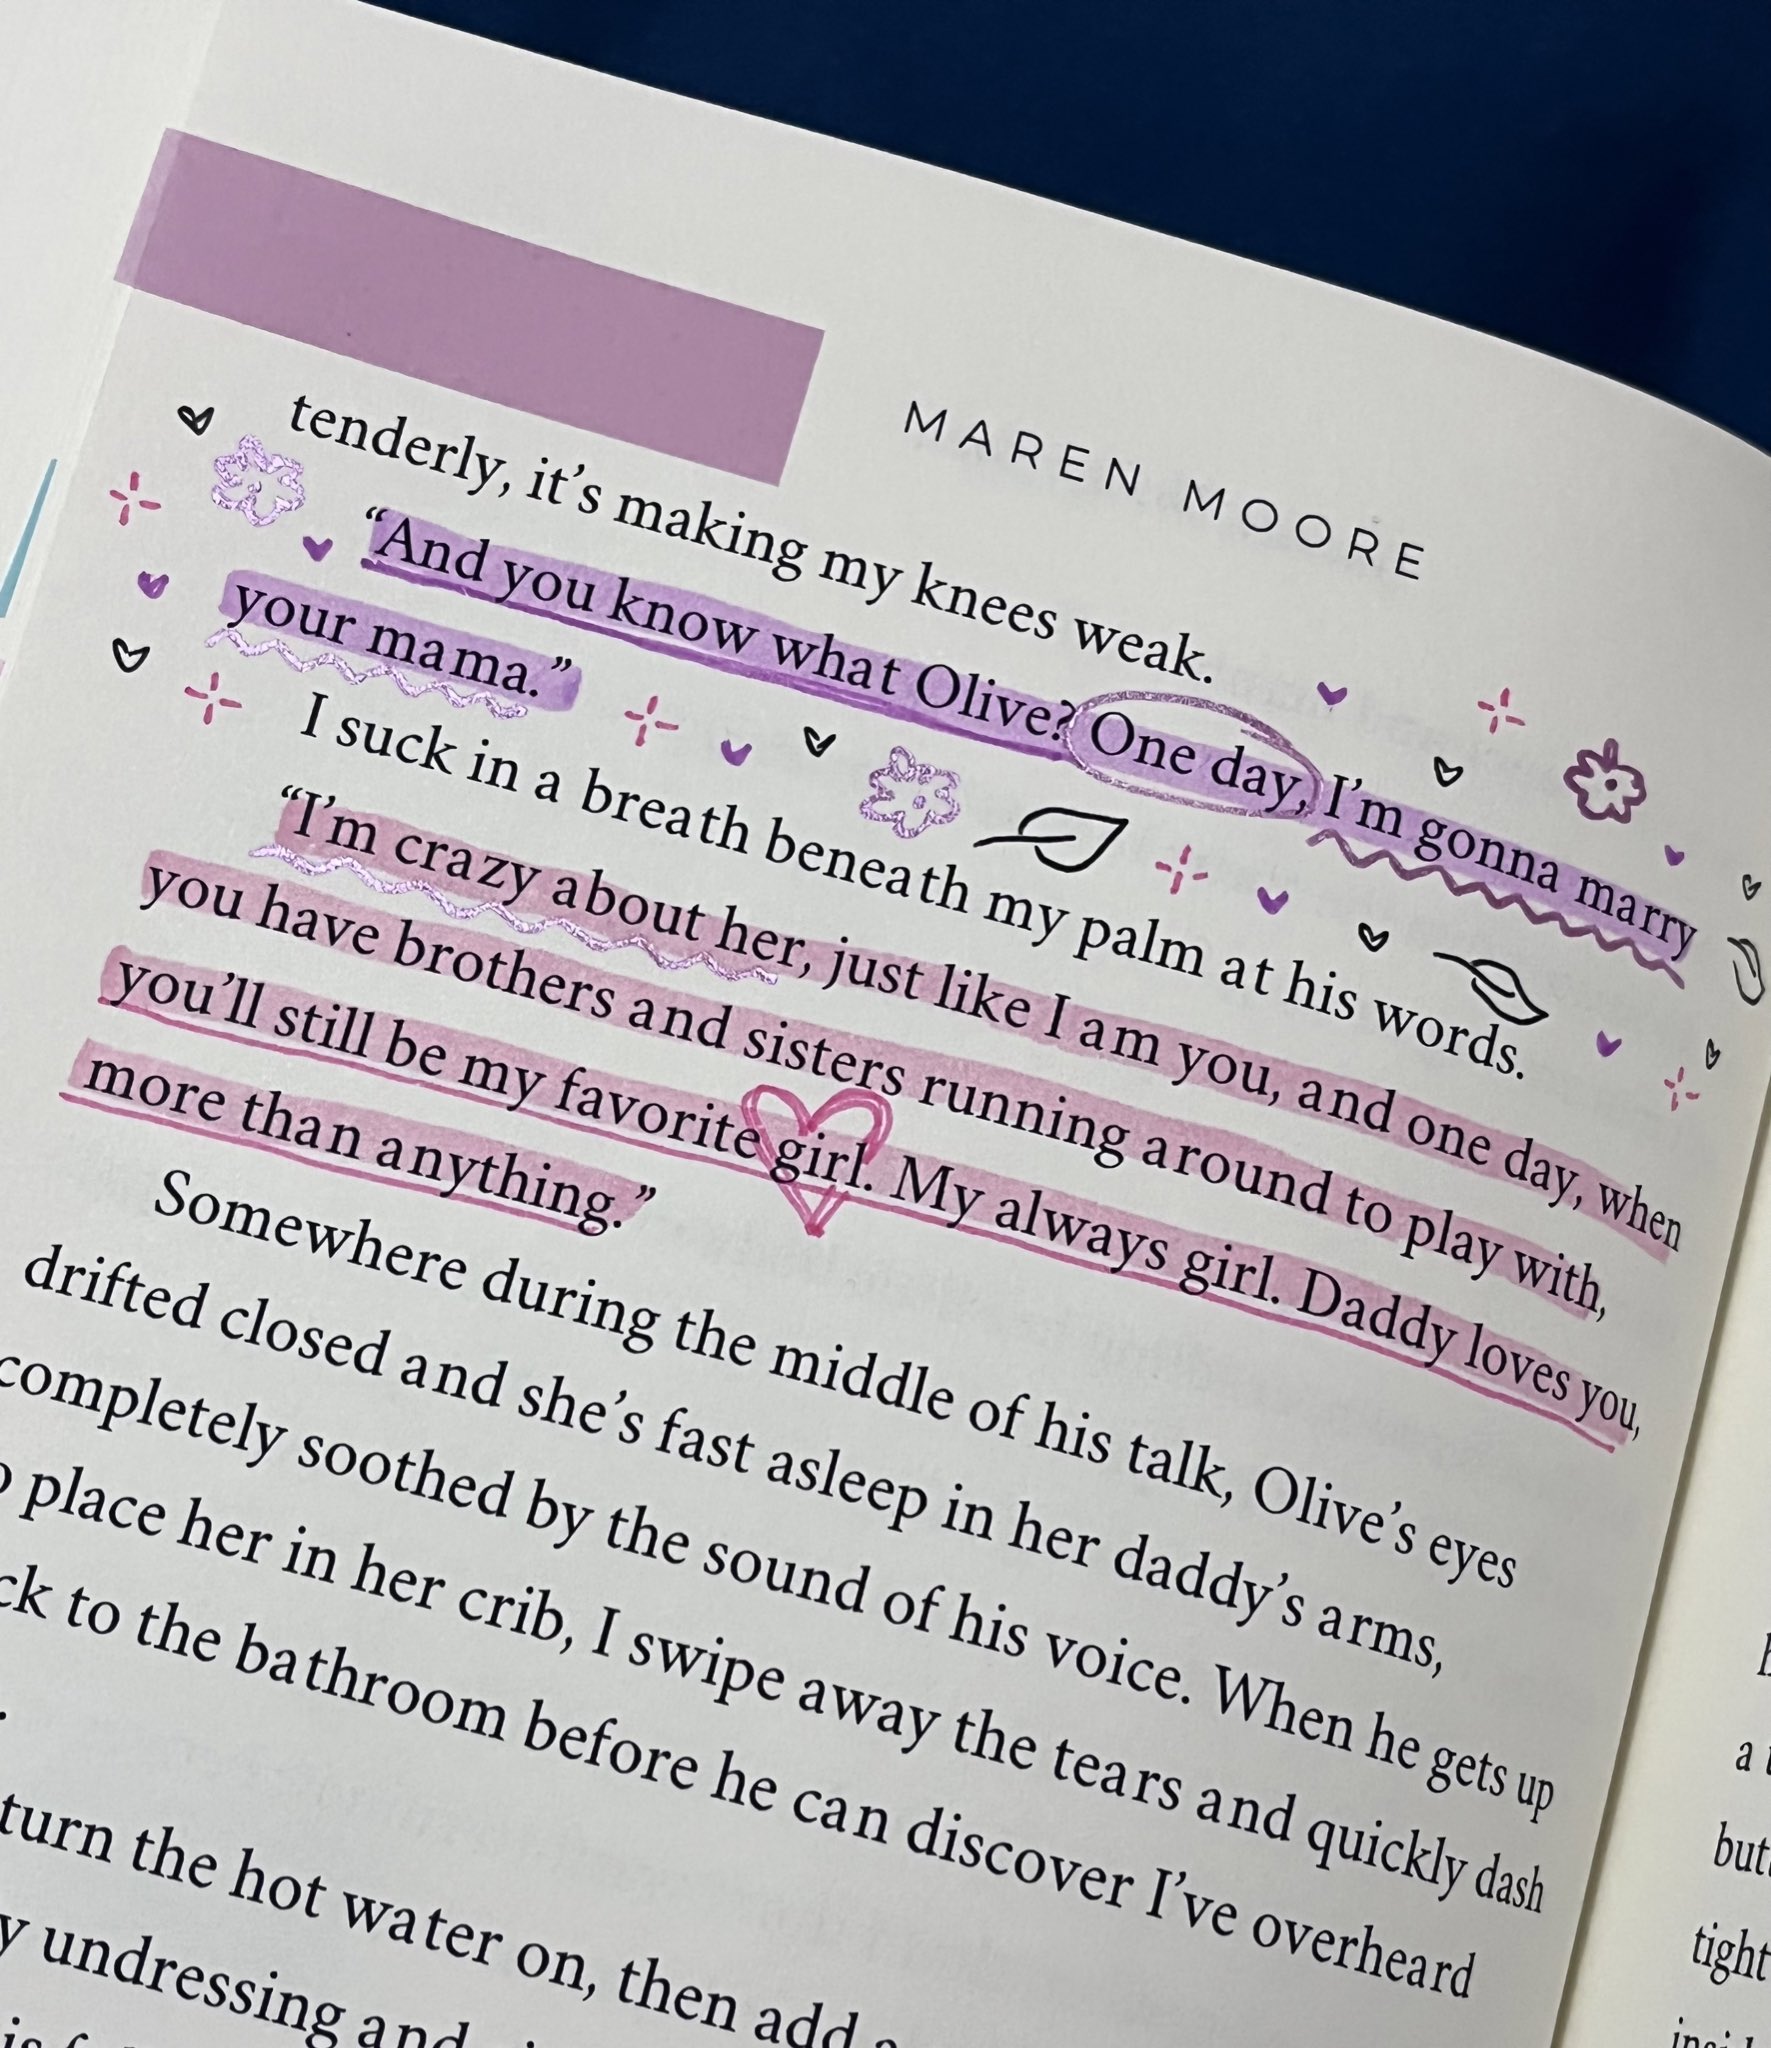 MAREN MOORE
tenderly, it's making my knees weak.
"And you know what Olive? One day, I'm gonna marry
your mama."
I suck in a breath beneath my palm at his words.
"I'm crazy about her, just like I am you, and one day, when
you have brothers and sisters running around to play with,
you'll still be my favorite girl. My always girl. Daddy loves you,
more than anything."
Somewhere during the middle of his talk, Olive's eyes
drifted closed and she's fast asleep in her daddy's arms,
completely soothed by the sound of his voice. When he gets up
place her in her crib, I swipe away the tears and quickly dash
to the bathroom before he can discover I've overheard
turn the hot water on, then add
undressing and
a
but
tight